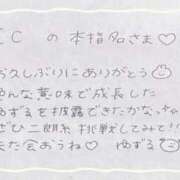 IC の本指名さま♡
お久しぶりにありがとう
色んな意味で成長した
ゆずるを披露できたかなっ
ぜひ二郎系挑戦してみて!!
また会おうね♡ ゆずる